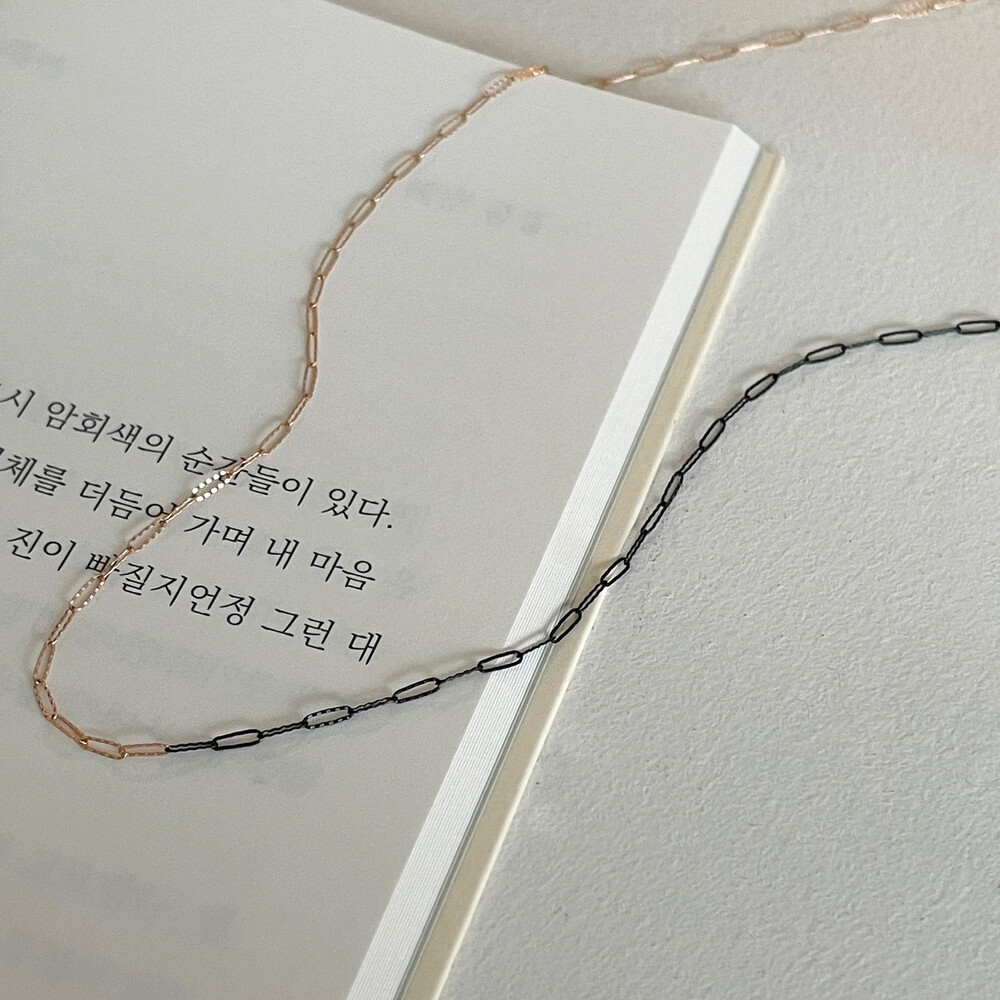 시 암회색의 순간들이 있다.
체를 더듬어 가며 내 마음
진이 빠질지언정 그런 대